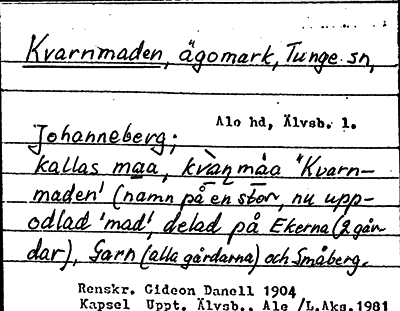 Kvarnmaden, ägomark, Tunge sn,
Ale hd, Älvsb. l.
Johanneberg;
kallas maa, kvaṇmåa "Kvarn-
maden' (namn på en stor, nu upp-
odlad 'mad', delad på Ekerna (2 går-
dar), Garn (alla gårdarna) och Småberg.
Renskr. Gideon Danell 1904
Kapsel Uppt. Älvsb., Ale /L.Aks.1981